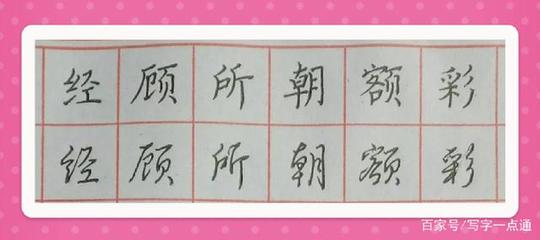 经顾所朝额彩
经顾所朝额彩
百家号/写字一点通